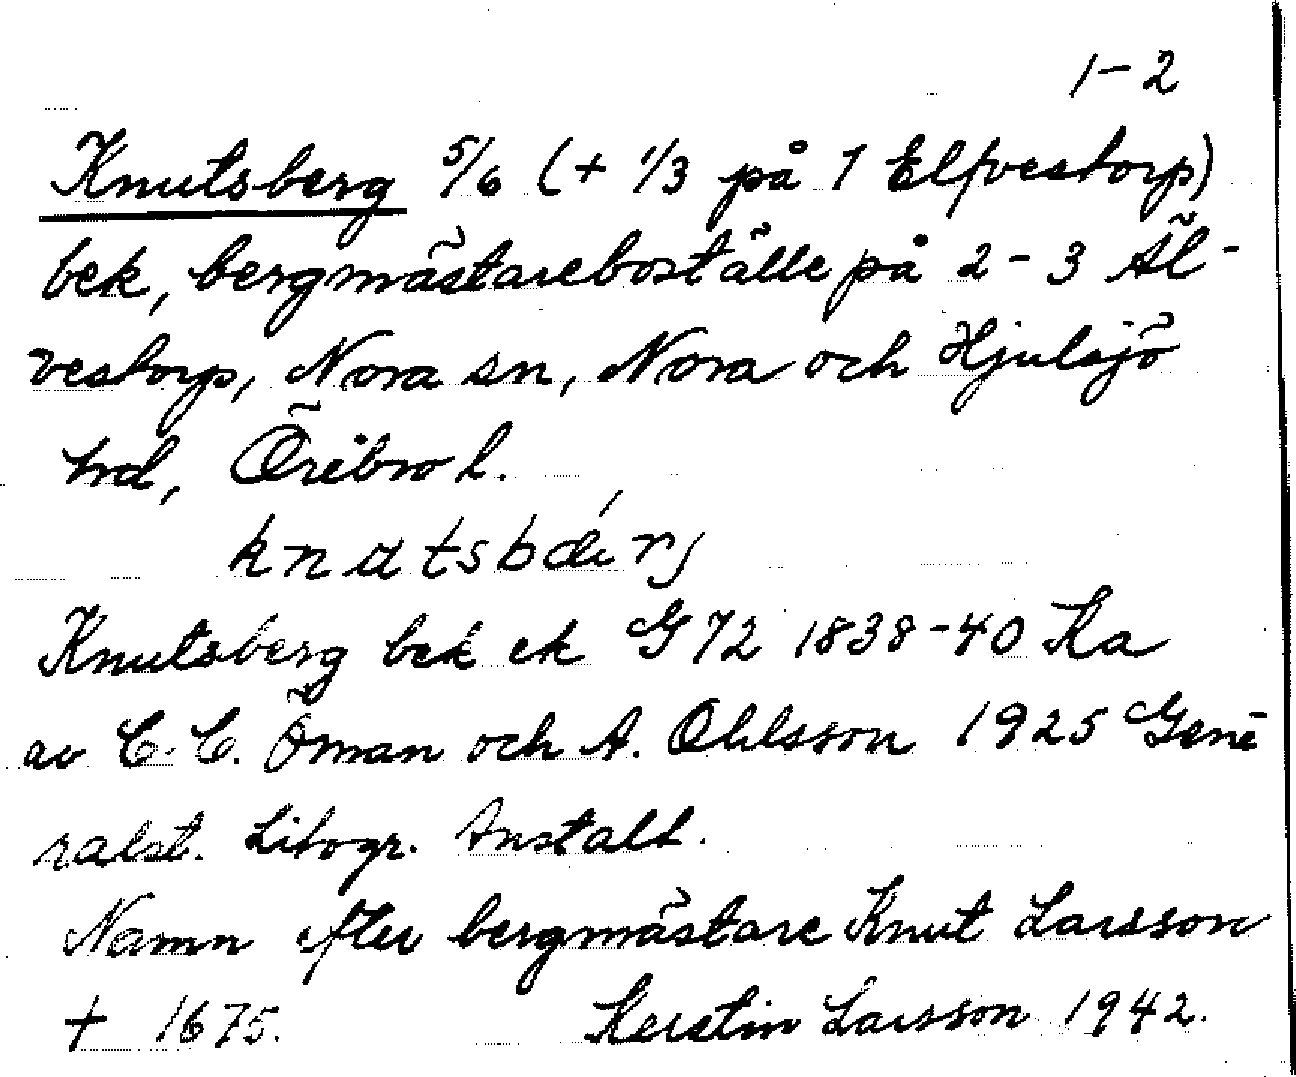 1-2
Knutsberg 5/6 (+ 1/3 på 1 Elfvestorp)
bek, bergmästareboställe på 2-3 Äl-
vestorp, Nora sn, Nora och Hjulsjö
hrd, Örebro l.
knutsbærj
Knutsberg bek ek G 72 1838-40 Ka
av C. C. Öman och A. Ohlsson 1925 Gene
ralst. Litogr. Anstalt.
Namn efter bergmästare Knut Larsson
† 1675. Kerstin Larsson 1942.